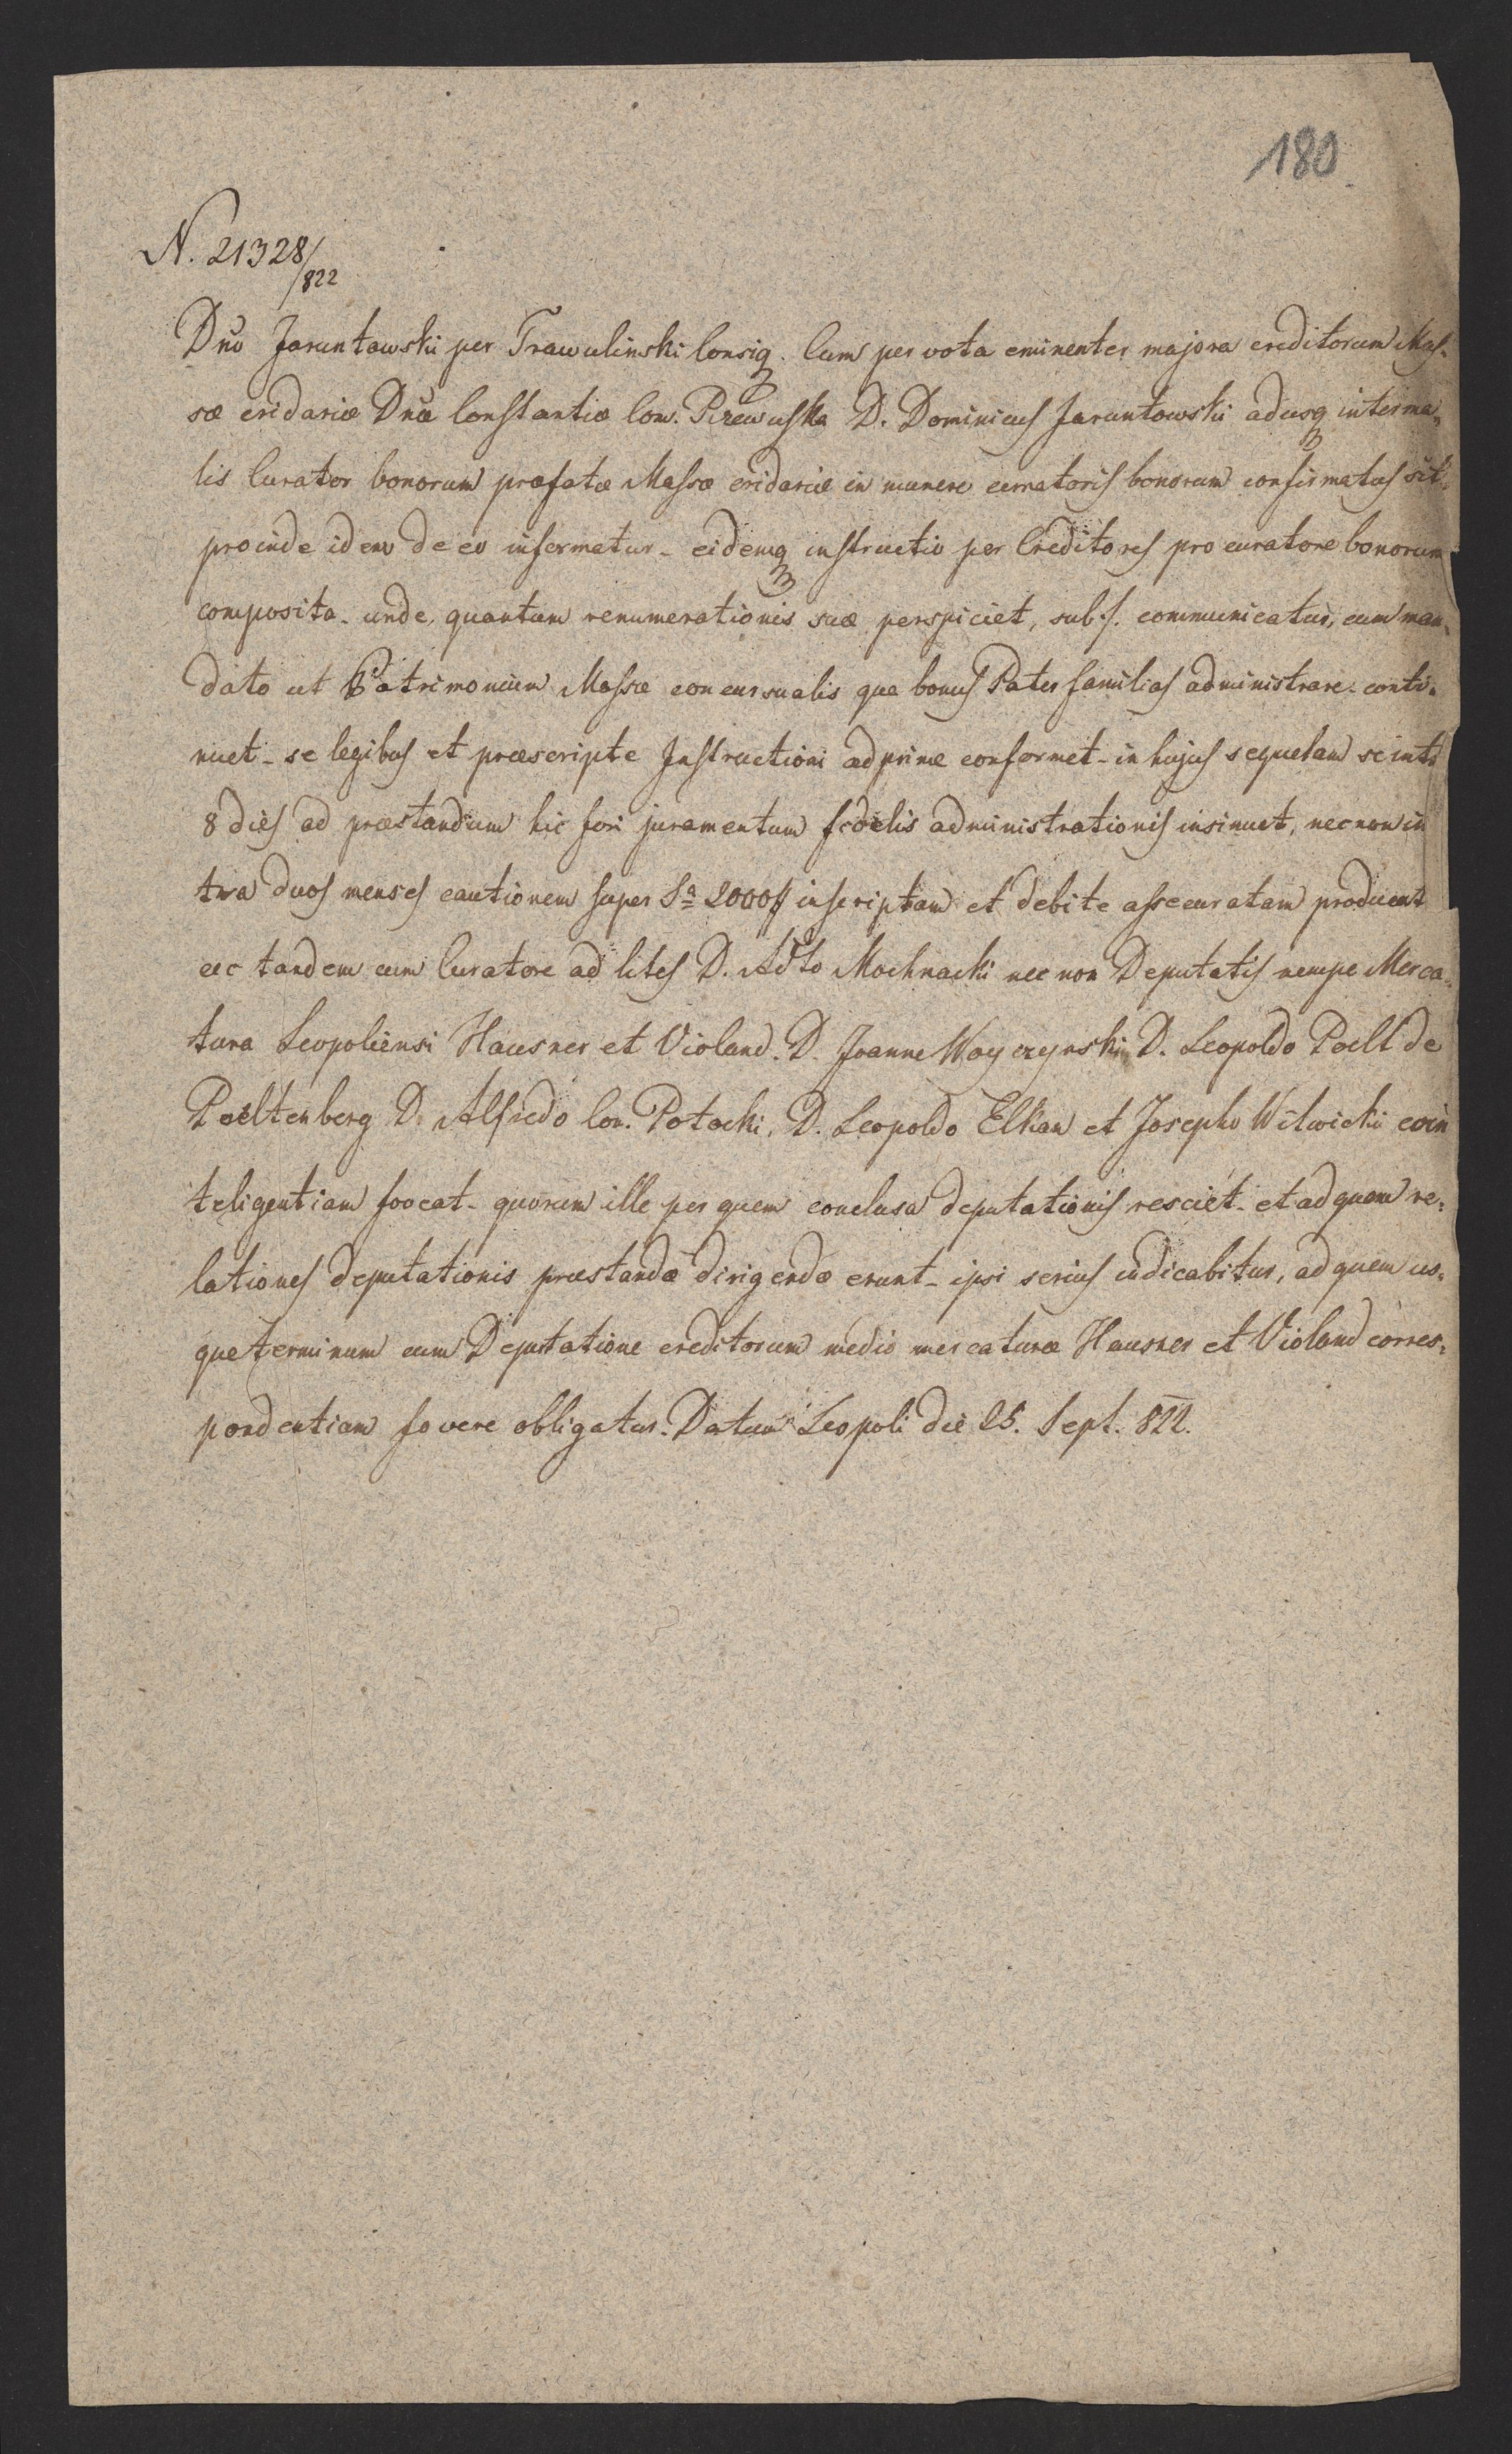 180
N. 21328/822
Dno Jaruntowski per Trawulinski Consiq. Cum per vota eminenter majora creditorum Mas-
sæ cridariæ Dnæ Constantiæ Com. Rzewuska D. Dominicus Jaruntowski adusq interma-
lis Curator bonorum præfatæ Massæ cridariæ in munere curatoris bonorum confirmatus sit
proinde idem de eo informatur - eidemq instructio per Creditores pro curatore bonorum
composita - unde, quantum renumerationis suæ perspiciet, sub ·/. communicatur, cum man-
dato ut Patrimonium Massæ concursualis qua bonus Pater familias administrare - conti-
nuet - se legibus et præscripte Instructioni adprime conformet - in hujus sequelam se intr
8 dies ad præstandum hic fori juramentum fidelis administrationis insinuet, nec non in
tra duos menses cautionem super Sa 2000 # inscriptam et debite assecuratam producat
ac tandem cum Curatore ad lites D. Adto Mochnacki nec non Deputatis nempe Merca-
tura Leopoliensi Hausner et Violand. D. Joanne Woyczynski D. Leopoldo Poelt de
Poeltenberg D. Alfredo Com. Potocki, D. Leopoldo Elkan et Josepho Witwicki coin
teligentiam foveat - quorum ille per quem conclusa deputationis resciet - et ad quem re-
lationes deputationis præstandæ dirigendæ erunt - ipsi serius indicabitur, ad quem us-
que terminum cum Deputatione creditorum medio mercaturæ Hausner et Violand corres-
pondentiam fovere obligatur. Datum Leopoli die 25. Sept. 822.